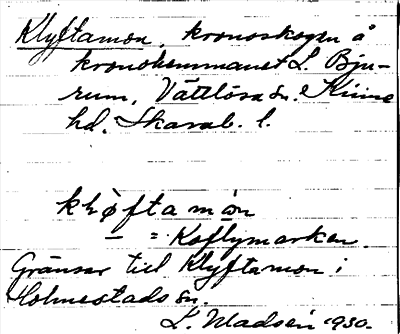 Klyftamon, kronoskogen å
kronohemmanet L. Bju-
rum, Vättlösa sn. Kinne
hd. Skarab. l.
klyftamon
— = Koflymarken.
Gränsar till Klyftamon i
Holmestads sn.
L. Madsén 1930.